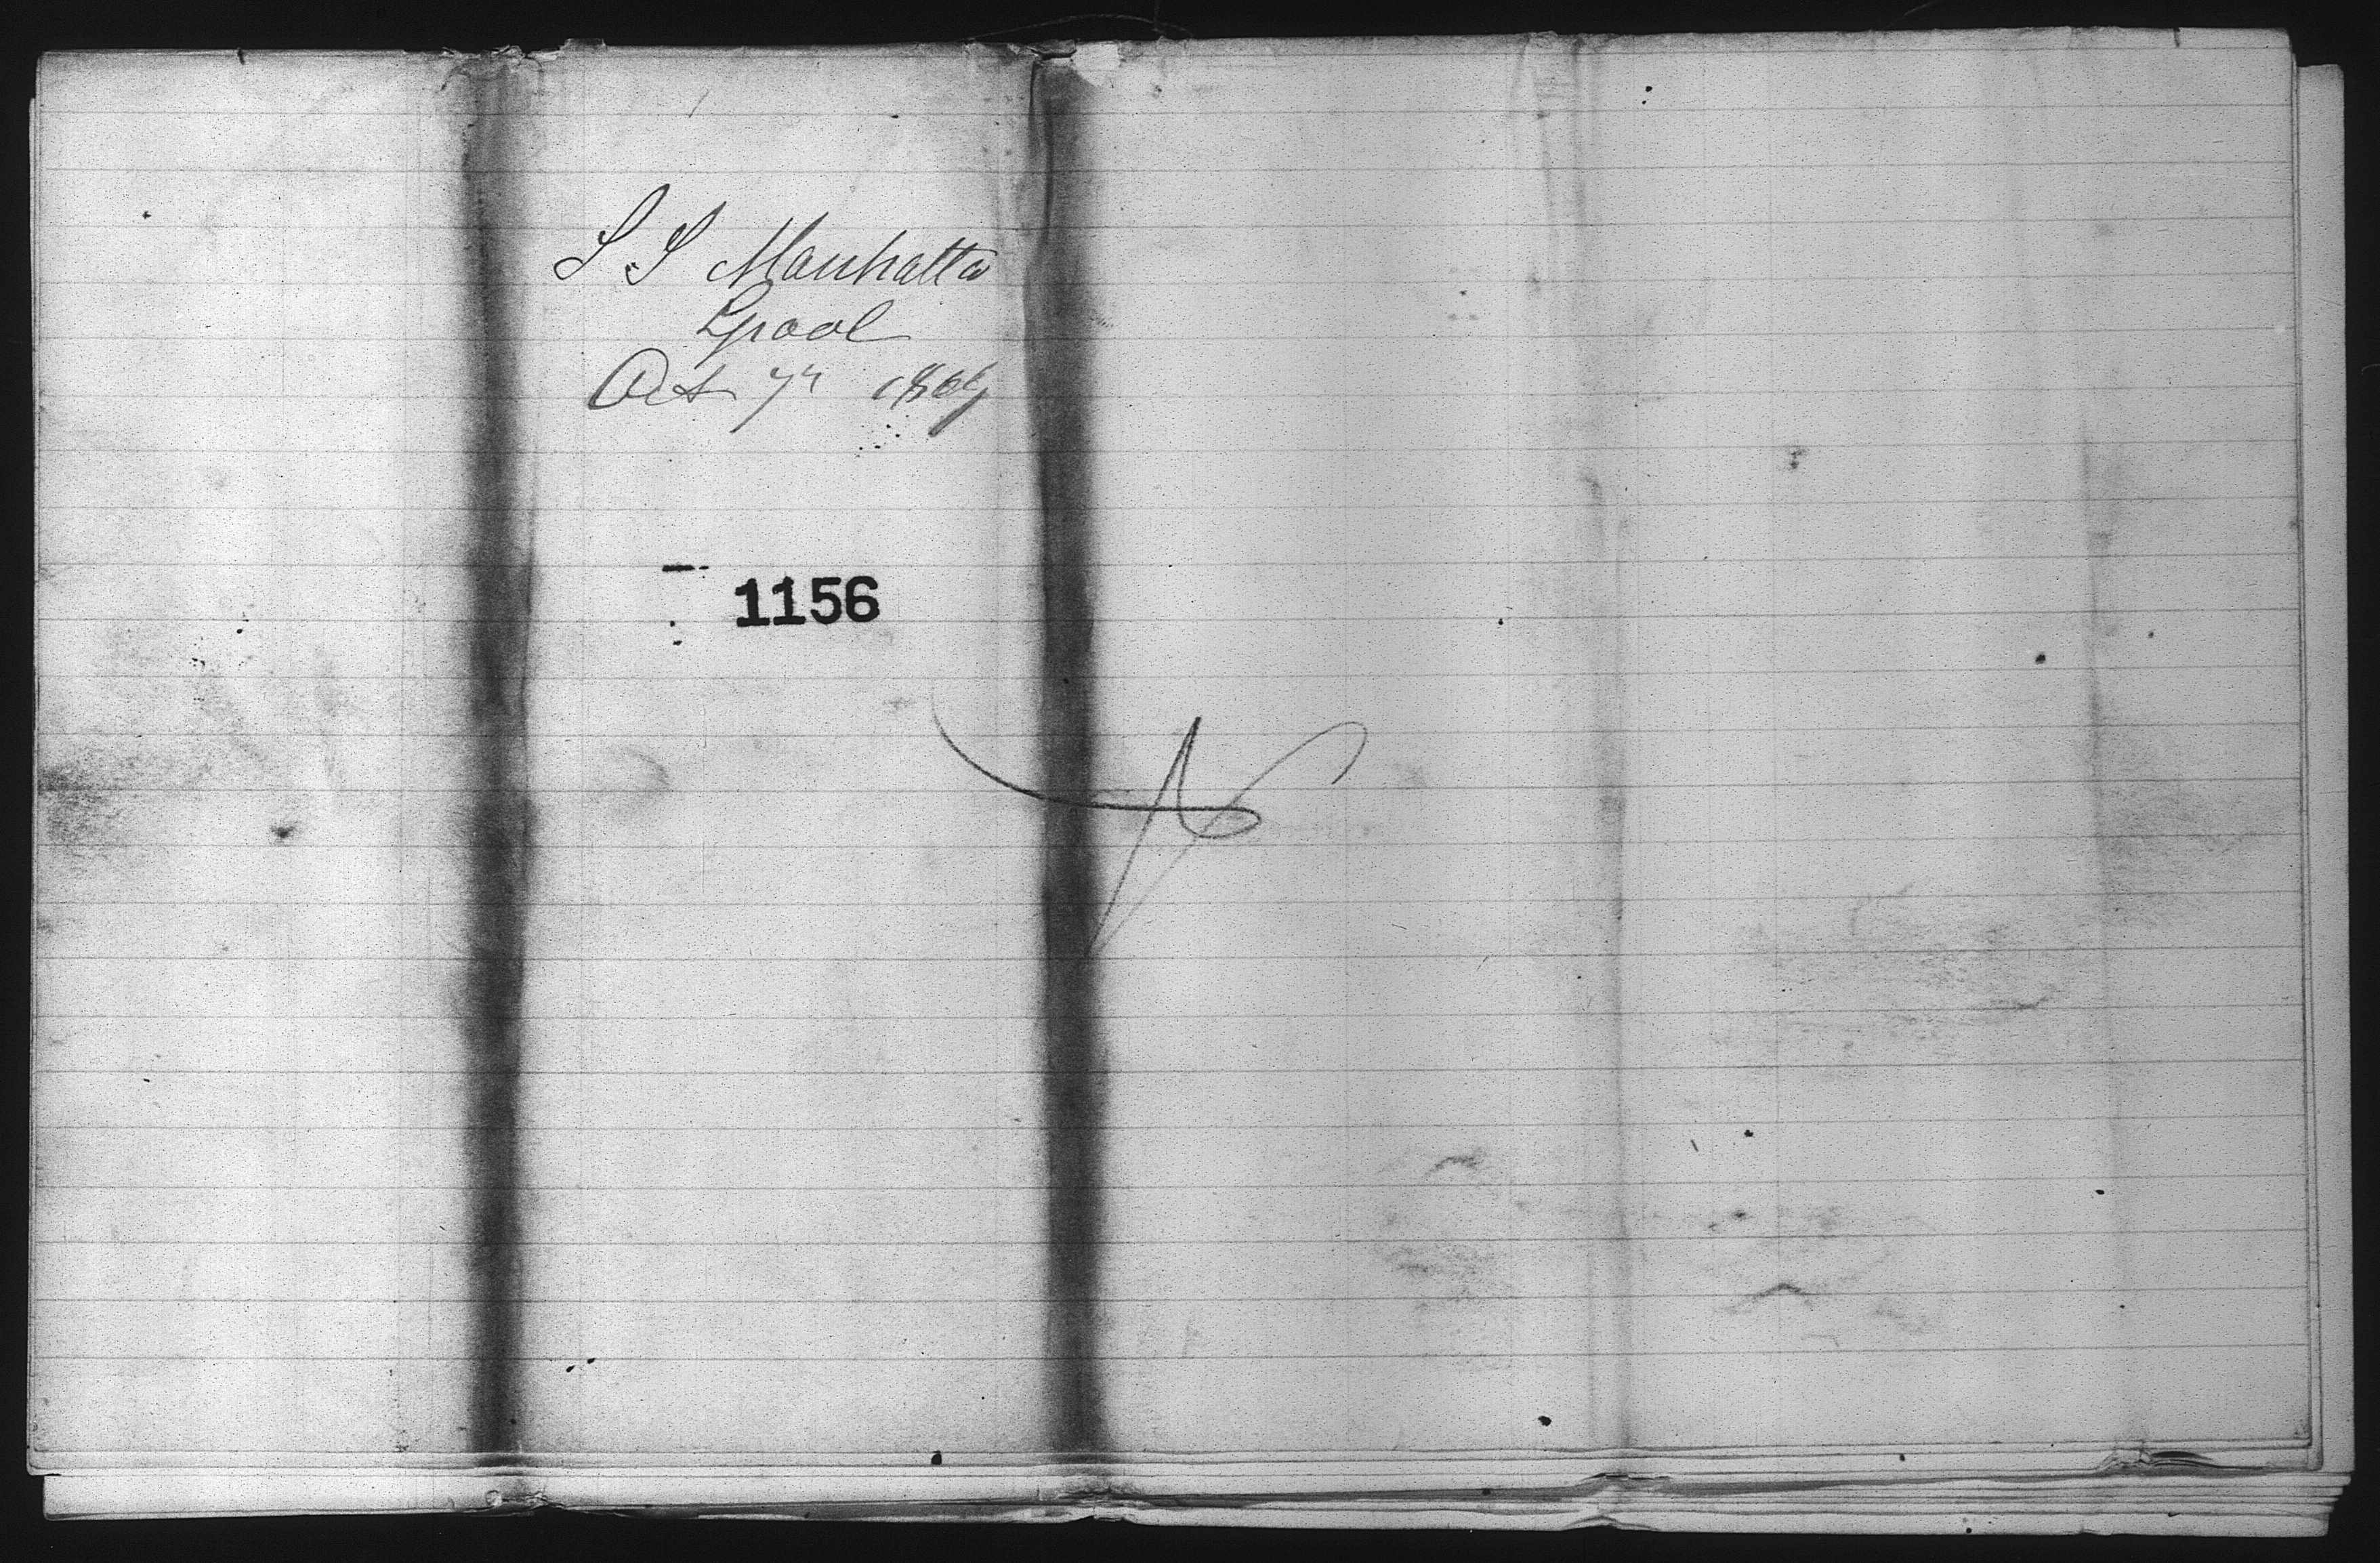 S S Manhattan
Lpool
Oct 7th 1869
1156